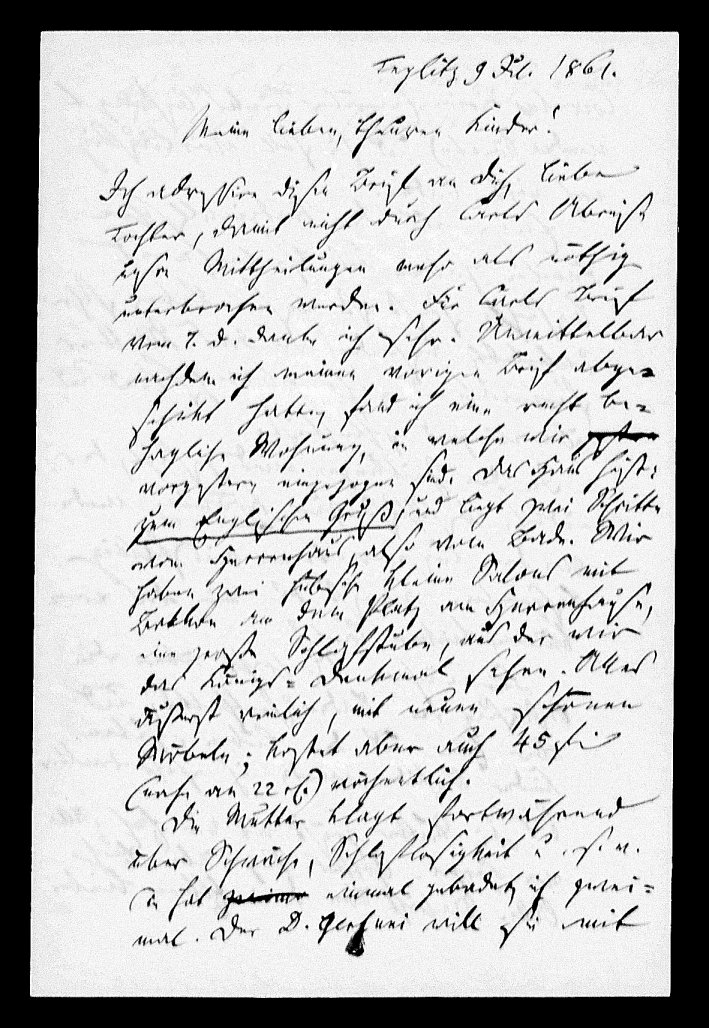 Teplitz 9 Jul. 1861.
Meine lieben, theuren Kinder!
Ich adressire diesen Brief an dich, liebe
Tochter, damit nicht durch Carls Abreise
unsre Mittheilungen mehr als nöthig
unterbrochen werden. Für Carls Brief
vom 7. d. danke ich sehr. Unmittelbar
nachdem ich meinen vorigen Brief abge=
schickt hatte, fand ich eine recht be=
hagliche Wohnung, in welche wir gestern
vorgestern eingezogen sind. Das Haus heißt:
zum Englischen Gruß, und liegt zwei Schritte
vom Herrenhaus, also vom Bade. Wir
haben zwei hübsche kleine Salons mit
Balkon an dem Platz am Herrenhause,
eine große Schlafstube, aus der wir
das Königs=Denkmal sehen. Alles
äußerst reinlich, mit neuen schönen
Möbeln; kostet aber auch 45
(nahe an 22 ) wöchentlich.
Die Mutter klagt fortwährend
über Schwäche, Schlaflosigkeit u. s. w.
Sie hat einmal gebadet, ich zwei=
mal. Der D. will sie mit